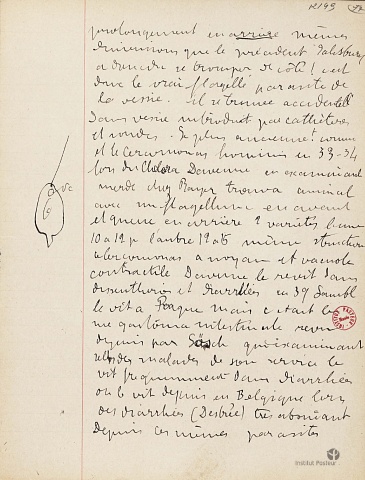 prolongement en arrière mêmes
dimensions que le précédent Salisbury
a de se tromper de côté ! c'est
donc le vrai flagellé parasite de
la vessie. il se trouve accidentell
dans vessie introduit par cathéters
et sondes. le plus anciennet connu
est le Cercomonas hominis en 53-54
lors du Choléra Davenne en examinant
merde chez Rayer trouva animal
avec un flagellum en avant
et queue en arrière 2 variétés l'une
10 à 12 µ l'autre 12 à 6 même structure
cercomonas a noyau et vacuole
contractile Davenne le revit dans
dysentéries et diarrhées en 59 Lambl
le vit à Prague mais c'était le
megastoma intestinale revu
depuis par qui examinant
selles des malades de son service le
vit fréquemment dans diarrhées
on le vit depuis en Belgique lors
des diarrhées très abondant
depuis ces mêmes parasites
vc
INSTITUT PASTEUR
Institut Pasteur